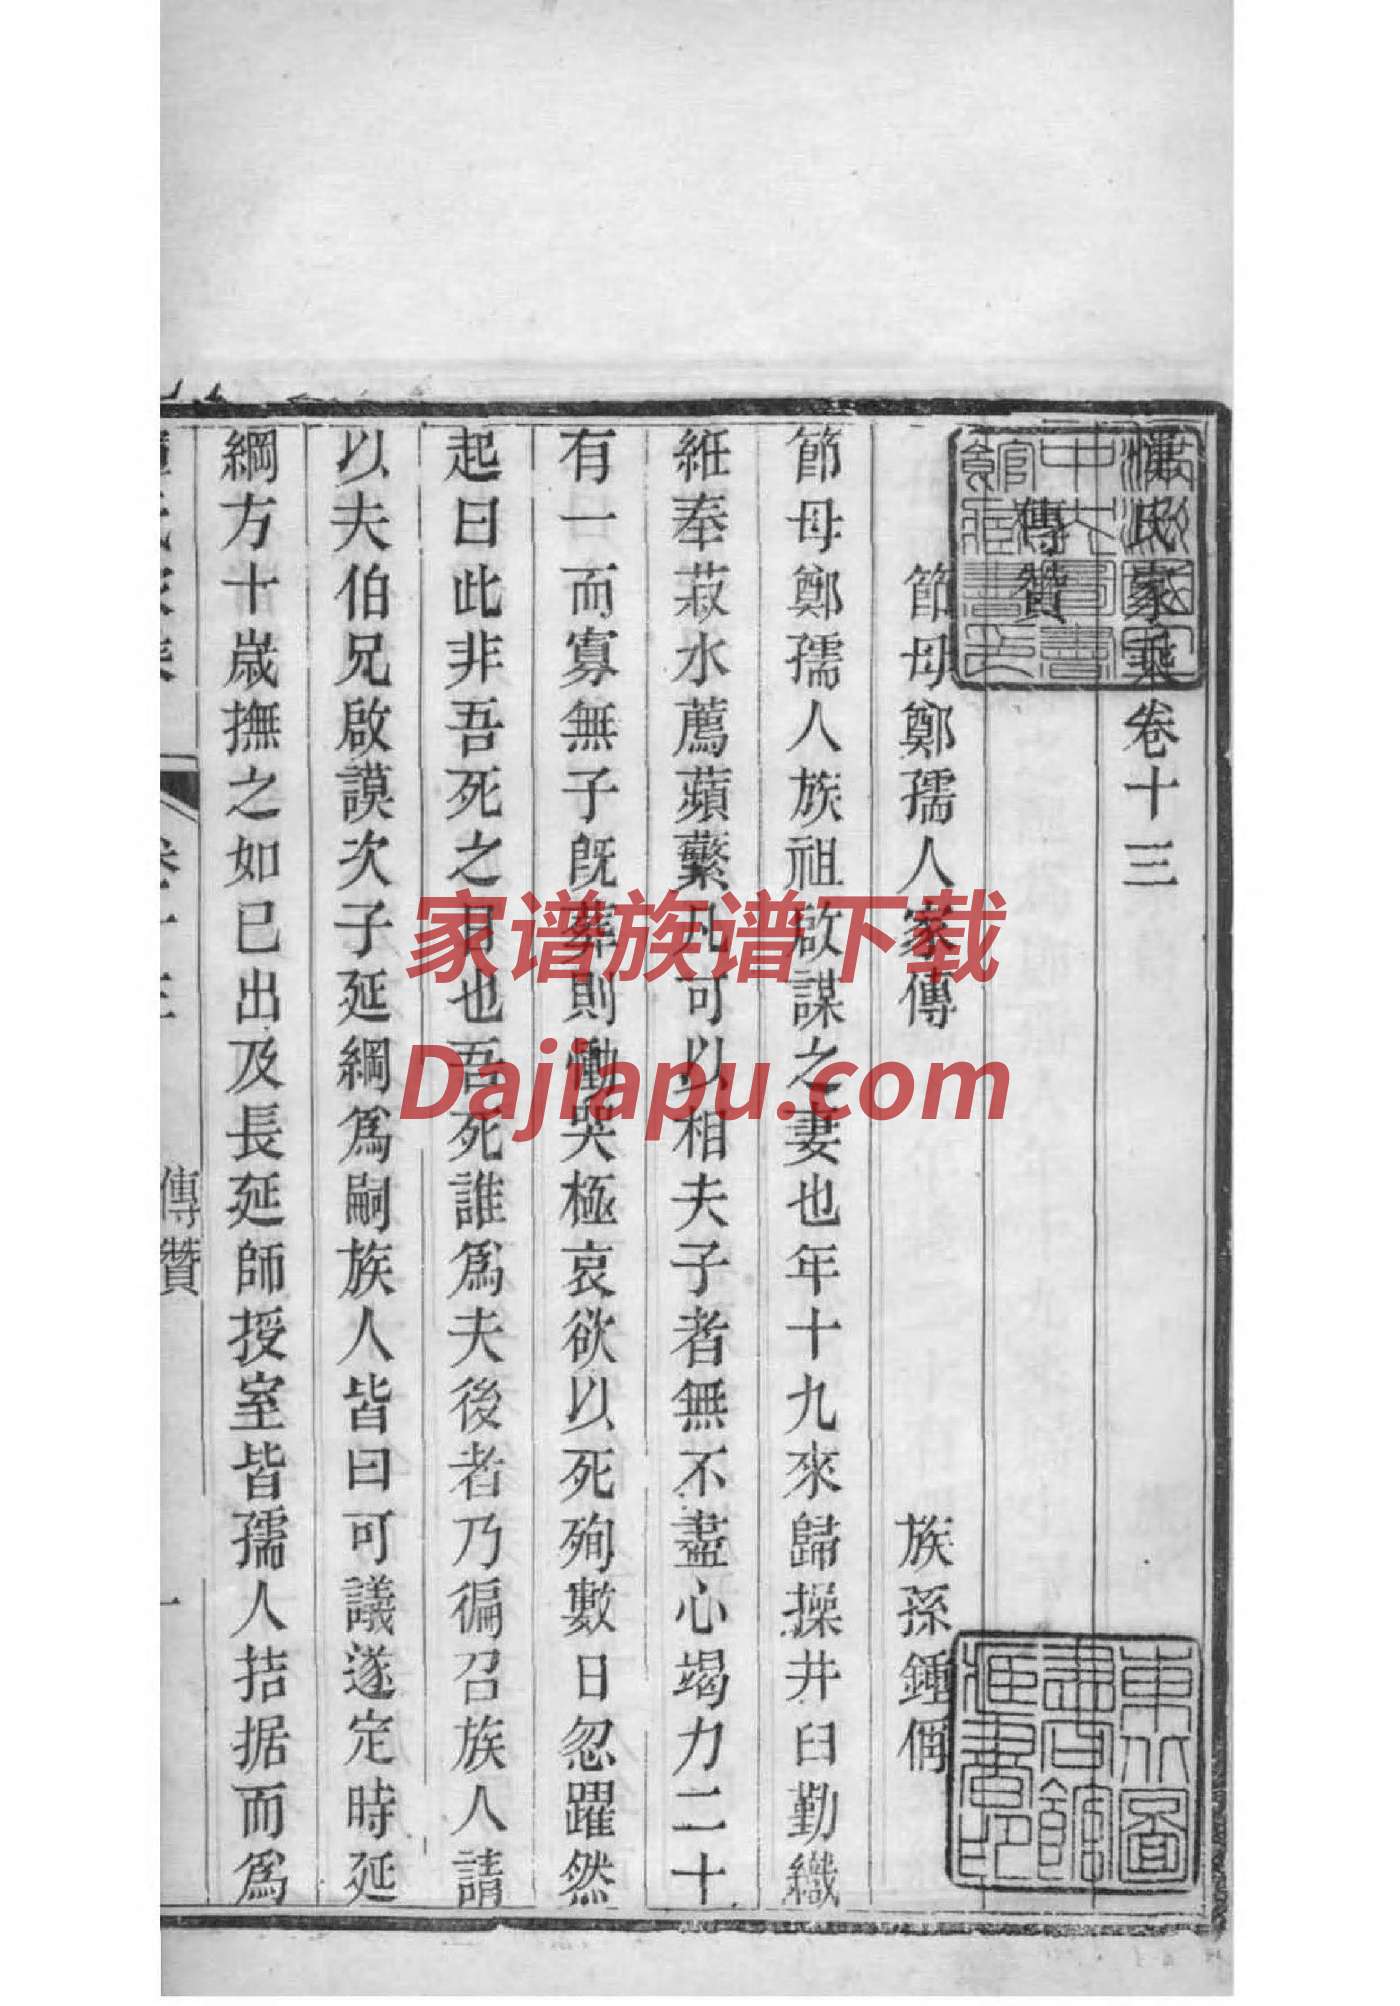 氏家乘卷十三
傳贊
節母鄭孺人家傳 族孫鍾俏
節母鄭孺人族祖啟謀之妻也年十九來歸操井臼勤織
紝奉菽水薦蘋蘩凡可以相夫子者無不盡心竭力二十
有一而寡無子既葬則慟哭極哀欲以死殉數日忽躍然
起曰此非吾死之日也吾死誰爲夫後者乃徧召族人請
以夫伯兄啟謨次子延綱爲嗣族人皆曰可議遂定時延
綱方十歲撫之如已出及長延師授室皆孺人拮据而爲
卷十三
傳贊
一
家谱族谱下载
Dajiapu.com